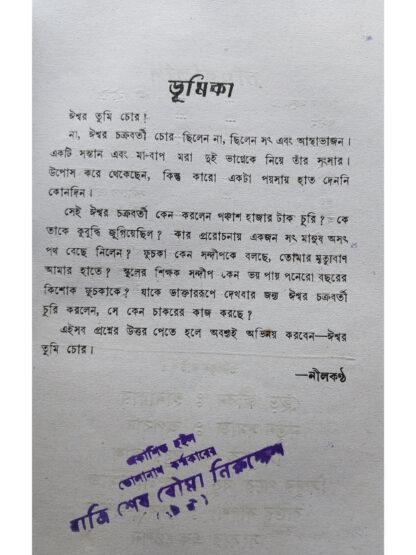 ভূমিকা
ঈশ্বর তুমি চোর!
না, ঈশ্বর চক্রবর্তী চোর ছিলেন না, ছিলেন সৎ এবং আস্থাভাজন।
একটি সন্তান এবং মা-বাপ মরা দুই ভাগ্নেকে নিয়ে তাঁর সংসার।
উপোস করে থেকেছেন, কিন্তু কারো একটা পয়সায় হাত দেননি
কোনদিন।
সেই ঈশ্বর চক্রবর্তী কেন করলেন পঞ্চাশ হাজার টাক চুরি? কে
তাকে কুবুদ্ধি জুগিয়েছিল? কার প্ররোচনায় একজন সৎ মানুষ অসৎ
পথ বেছে নিলেন? ফুচকা কেন সন্দীপকে বলছে, তোমার মৃত্যুবাণ
আমার হাতে? স্কুলের শিক্ষক সন্দীপ কেন ভয় পায় পনেরো বছরের
কিশোক ফুচকাকে? যাকে ডাক্তাররূপে দেখবার জন্য ঈশ্বর চক্রবর্তী
চুরি করলেন, সে কেন চাকরের কাজ করছে?
এইসব প্রশ্নের উত্তর পেতে হলে অবশ্যই অভিনয় করবেন—ঈশ্বর
তুমি চোর।
—নীলকণ্ঠ
প্রকাশিত হইল
ভোলানাথ কর্মকারের
রাত্রি শেষ বৌমা নিরুদ্দেশ